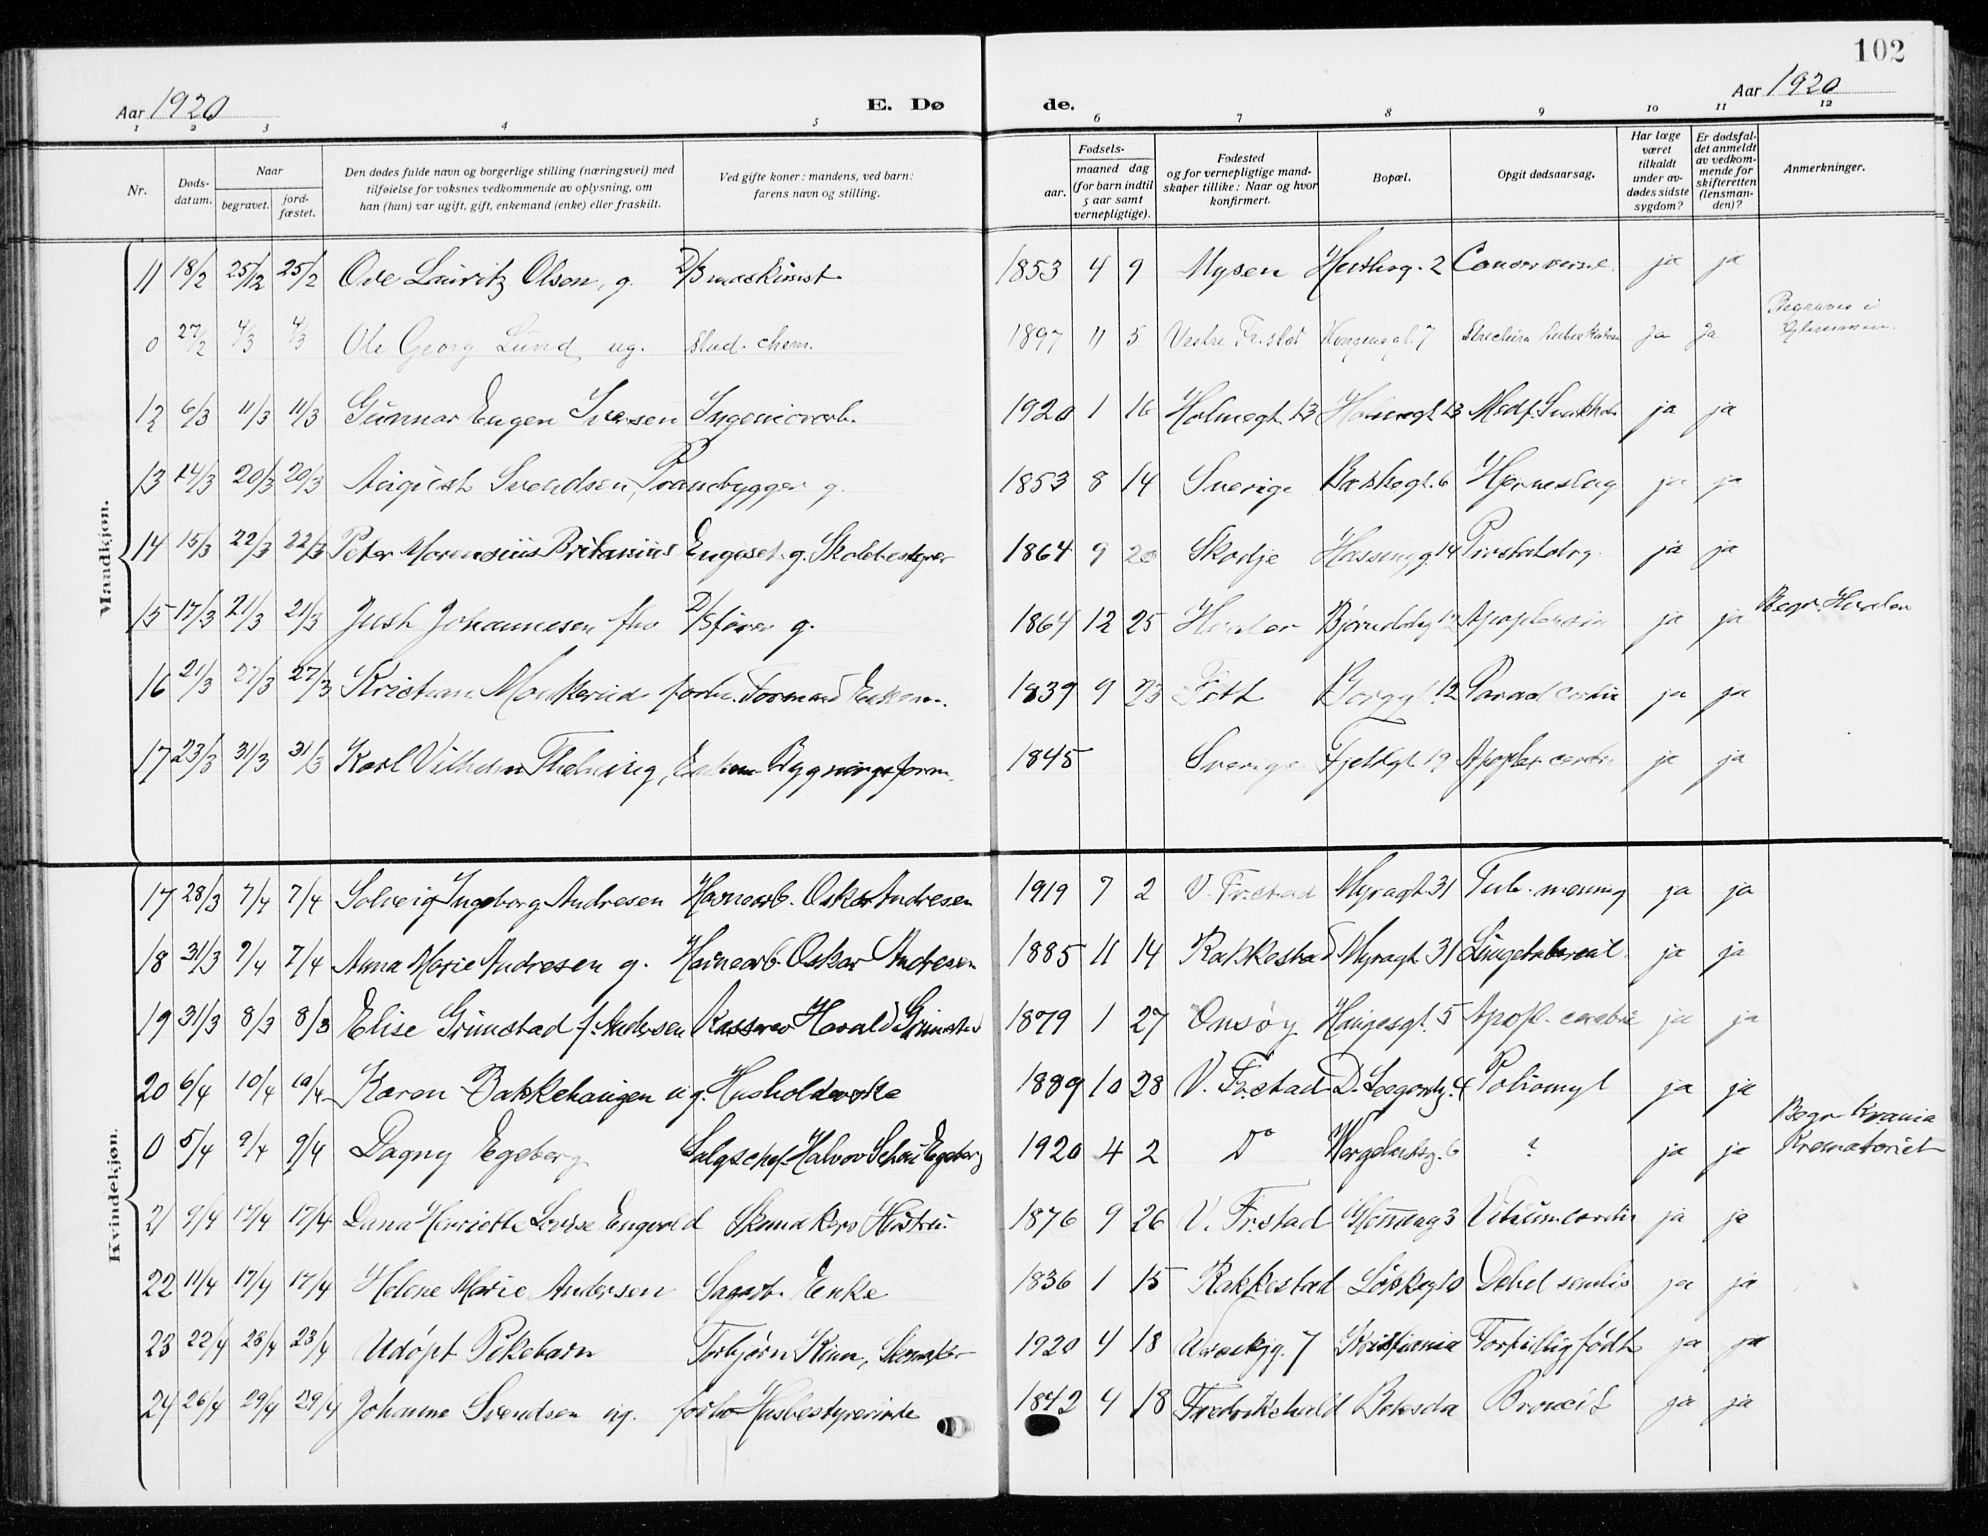 102
Aar 1920 E. Dø de. Aar 1920
1 2 3 4 5 6 7 8 9 10 11 12
Nr. Døds-datum. Naar begravet. jord-fæstet. Den dødes fulde navn og borgerlige stilling (næringsvei) med tilføielse for voksnes vedkommende av oplysning, om han (hun) var ugift, gift, enkemand (enke) eller fraskilt. Ved gifte koner: mandens, ved barn: farens navn og stilling. Fødsels- aar. maaned dag (for barn indtil 5 aar samt vernepligtige). Fødested og for vernepligtige mand-skaper tillike: Naar og hvor konfirmert. Bopæl. Opgit dødsaarsag. Har læge været tilkaldt under av-dødes sidste sygdom? Er dødsfal-det anmeldt av vedkom-mende for skifteretten (lensman-den)? Anmerkninger.
Mandkjøn.
11 18/2 25/2 25/2 Ole Lauritz Olsen, g. D/S maskinist 1853 4 9 Mysen 2 Cancer ja ja
0 27/2 4/3 4/3 Ole Georg Lund ug. stud. chem. 1897 11 5 Vestre Fr.stad Kongensgt. 7 ja ja Begraves i Glemmen
12 6/3 11/3 11/3 Gunnar Eugen Iversen Ingeniørarb. 1920 1 16 Holmegt. 13 Holmegt. 13 Medf. Svakhet ja ja
13 14/3 20/3 20/3 August Svendsen, Prambygger g. 1853 8 14 Sverige 6 Hjerneslag ja ja
14 15/3 22/3 22/3 Peter Morensius Britanius Engeset g. Skolebestyrer 1864 9 20 Skodje 14 ja ja
15 17/3 21/3 21/3 Just Johannesen fhv D/S fører g. 1864 12 25 Hvaler ja ja Begr. Hvaler
16 21/3 27/3 27/3 Kristian forhv. Formand Enkem. 1839 9 23 12 ja ja
17 23/3 31/3 31/3 Karl Vilhelm Thelning, Enkem Bygningsform. 1845 Sverige Fjeldgt 19 Apoplex cerebri ja ja
Kvindekjøn.
17 28/3 7/4 7/4 Solveig Ingeborg Andresen Havnearb. Oskar Andresen 1919 7 2 V. Fr.stad Myragt. 31 Tub. mening ja ja
18 31/3 7/4 7/4 Anna Marie Andresen g. Havnearb. Oskar Andresen 1885 11 14 Rakkestad Myragt 31 Lungetuberculose ja ja
19 31/3 8/3 8/3 Elise Grimstad f. Andersen Kasserer Harald Grimstad 1879 1 27 Onsøy Haugesgt. 5 Apopl. cerebri ja ja
20 6/4 10/4 10/4 Karen Bakkehaugen ug. Husholderske 1889 10 28 V. Fr.stad 4 Poliomyl ja ja
0 5/4 9/4 9/4 Dagny Egeberg Salgschef Halvor Schou Egeberg 1920 4 2 Do Wergelandsg. 6 ? ja ja Begr Krania Krematoriet
21 9/4 17/4 17/4 Henriette Lovise Engvold Skomakers Hustru 1876 9 26 V. Fr.stad 3 Vitium cordis ja ja
22 11/4 17/4 17/4 Helene Marie Andersen Sagarb. Enke 1836 1 15 Rakkestad Løkkegt 10 Debil senilis ja ja
23 22/4 23/4 23/4 Udøpt Pikebarn Torbjørn Kinn, Skomaker 1920 4 18 7 Kristiania Fortidlig født ja ja
24 26/4 29/4 29/4 Johanne Svendsen ug. forhv Husbestyrerinde 1842 4 18 Fredrikshald Betesda Broncit ja ja